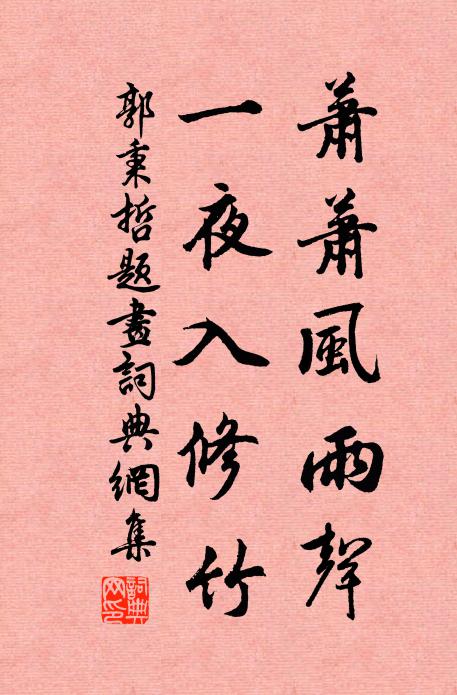 蕭蕭風雨聲
一夜入修竹
郭秉哲題畫詞典網集
詞典
网印